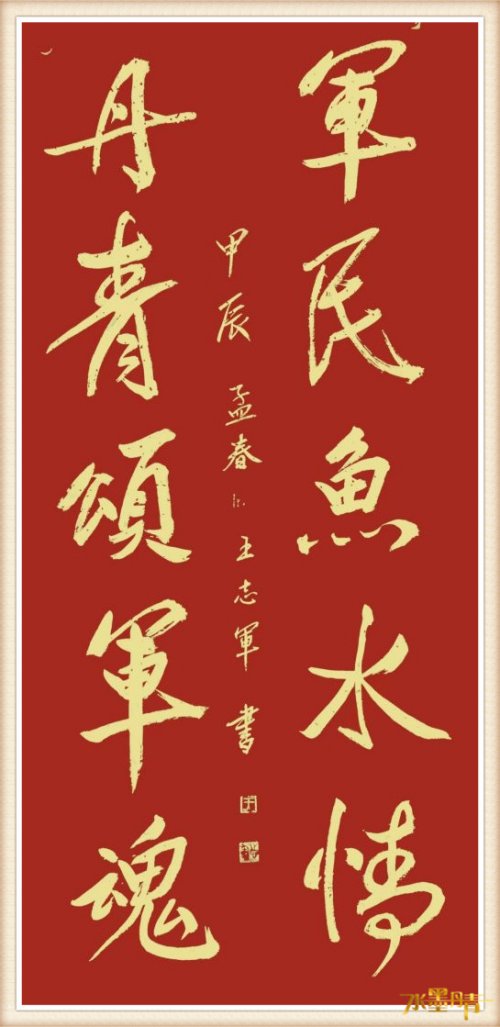 軍民魚水情
丹青頌軍魂
甲辰孟春 王志軍書
水墨晴